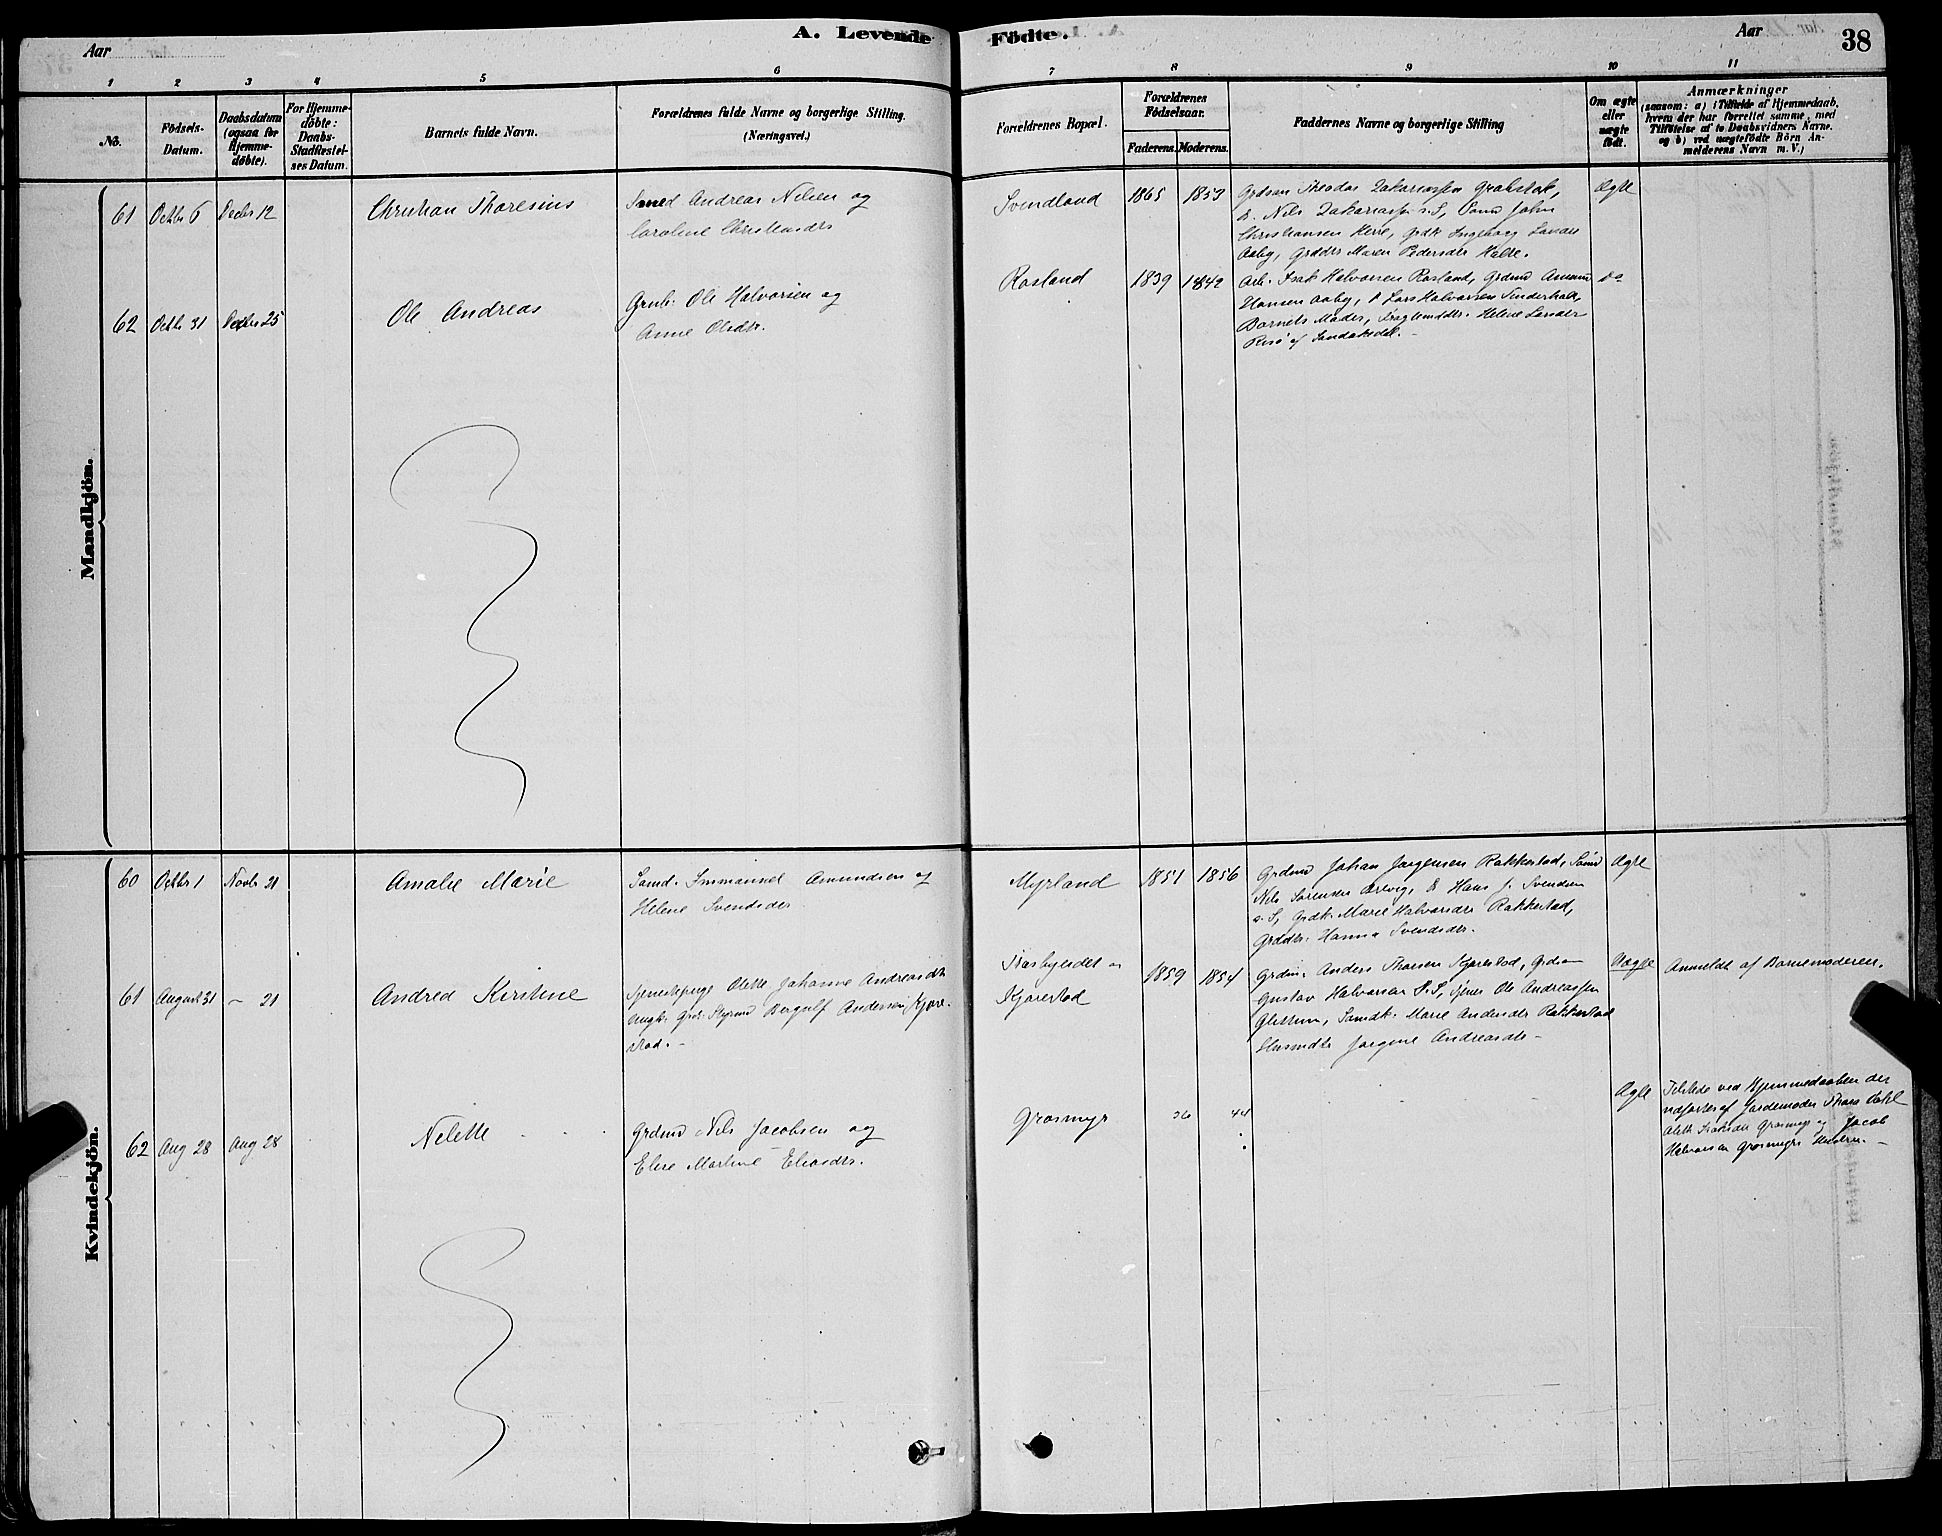 Aar
A. Levende
Födte.
Aar
38
1 2 3 4 5 6 7 8 9 10 11
No.
Födsels-Datum.
Daabsdatum (ogsaa for Hjemme-döbte).
For Hjemme-döbte: Daabs-Stadfæstel-ses Datum.
Barnets fulde Navn.
Forældrenes fulde Navne og borgerlige Stilling. (Næringsvei.)
Forældrenes Bopæl.
Forældrenes Födselsaar.
Faderens. Moderens.
Faddernes Navne og borgerlige Stilling
Om ægte eller uægte födt.
Anmærkninger
(saasom: a) i Tilfælde af Hjemmedaab,
hvem der har forrettet samme, med
Tilföielse af to Daabsvidners Navne.
og b) ved uægtefödte Börn An-
melderens Navn m. V.)
Mandkjön.
61 Octbr 6 Decbr 12
Christian Thoresius
Smed Andreas Nilsen og
Caroline Christensdr
Svendland
1865 1853
Grdsøn Theodor Zakariassen
Nils Zakariassen s. S, John
Christiansen Ingeborg
Aaby, Maren Pedersdr Halde.
Ægte
62 Octbr 31 Decbr 25
Ole Andreas
Grub. Ole Halvorsen og
Anne Olsdr.
Rosland
1839 1842
Arb. Isak Halvorsen Rosland, Grdmd
Hansen Aaby, Lars Halvorsen
Barnets Moder, Helene
Risö af
do
Kvindekjön.
60 Octbr 1 Novbr 21
Amalie Marie
Sømd. Immanuel Amundsen og
Helene Svendsdr.
Myrland
1851 1856
Grdmd Johan Jørgensen Rakkestad, Sømd
Nils Sørensen Hans J. Svendsen
s. S, Grdk. Marie Halvorsdr Rakkestad,
Grddr. Hanna Svendsdr.
Ægte
61 August 31 - 21
Andrea Kirstine
Tjenestepige Olette Johanne Andreasdtr
Ungk. Grds. Styrmd Bergulf Andersen Kjøre-
stad.
Kjørestad
1859 1854
Grdm. Anders Thorsen Kjørestad, Grdsøn
Gustav Halvorsen s. S, Tjener Ole Andreassen
Sømdk. Marie Andersdr Rakkestad
Jørgine Andreasdr -
Uægte
Anmeldt af Barnemoderen.
62 Aug 28 Aug 28
Nelette
Grdmd Nils Jacobsen og
Elise Martine Eliasdr.
Grosmyr
36 44
Ægte
Tilstede ved Hjemmedaaben der
udførtes af Jordemoder
Olette Isaksdr Grosmyr og Jacob
Halvorsen Grosmyrs